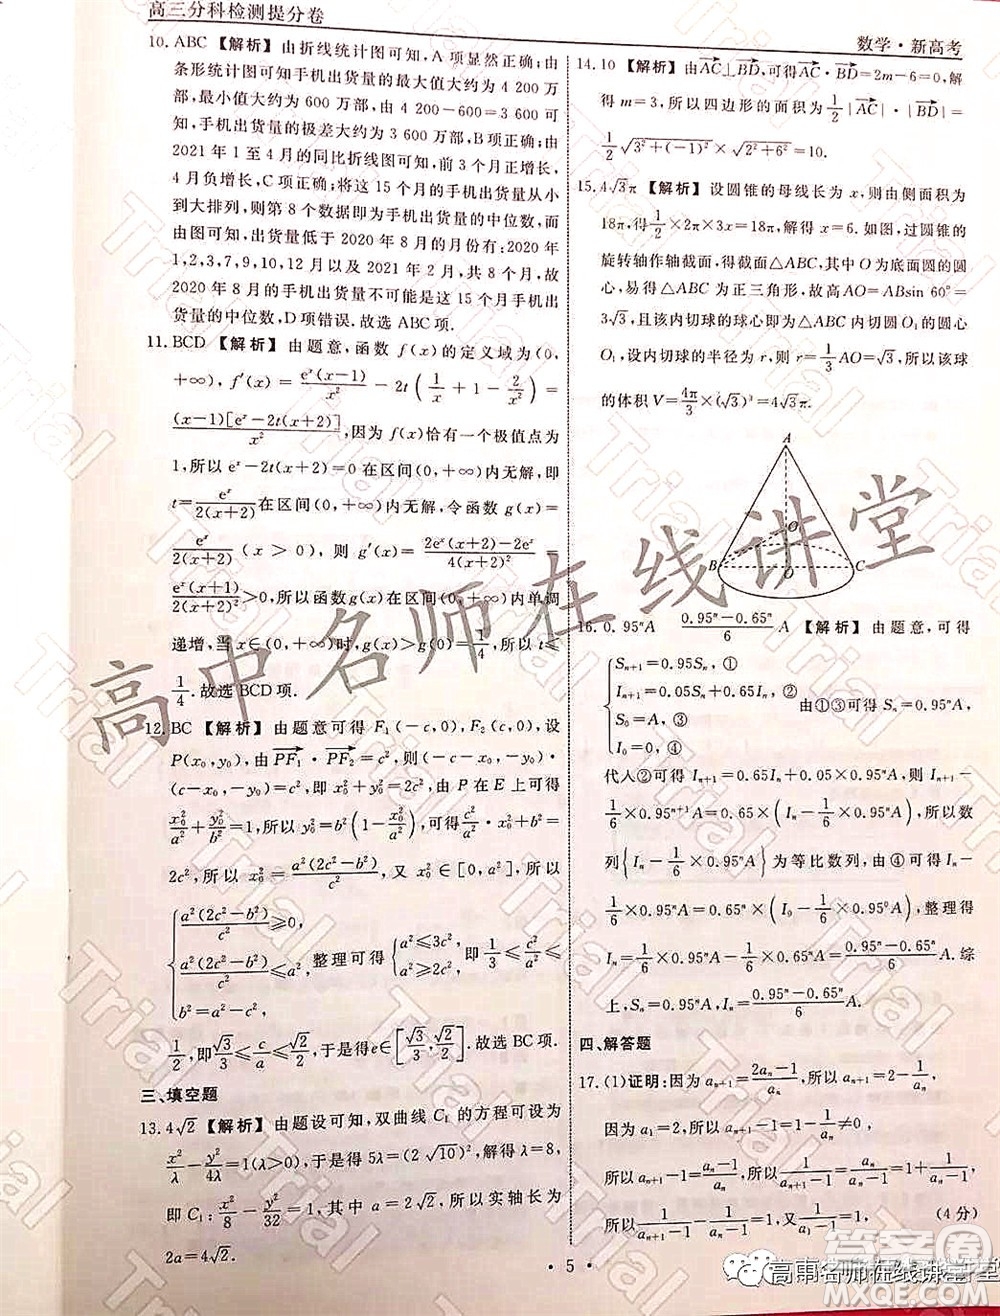 高三分科检测提分卷
数学·新高考
10. ABC 【解析】由折线统计图可知,A项显然正确;由
条形统计图可知手机出货量的最大值大约为4 200万
部,最小值大约为600万部,由4 200-600=3 600可
知,手机出货量的极差大约为3 600万部,B项正确;由
2021年1至4月的同比折线图可知前3个月正增长,
4月负增长,C项正确;将这15个月的手机出货量从小
到大排列,则第8个数据即为手机出货量的中位数,而
由图可知,出货量低于2020年8月的月份有:2020年
1,2,7,9,10,11月以及2021年2月,共8个月,所以
2020年8月的手机出货量不可能是这15个月手机出
货量的中位数,D项错误.故选ABC项.
11. BCD 【解析】由题意,函数f(x)的定义域为(0,
+∞),f′(x)=e^x(x-1)/x²-2t(1/x+1-2/x²)=
(x-1)[e^x-2t(x+2)]/x²,因为f(x)恒有一个极值点为
1,所以e^x-2t(x+2)=0在区间(0,+∞)内无解,即
t=e^x/2(x+2)在区间(0,+∞)内无解,令函数g(x)=
e^x/2(x+2)(x>0),则g′(x)=2e^x(x+2)-2e^x/4(x+2)²=
e^x(x+1)/2(x+2)²>0,所以函数g(x)在(0,+∞)内单调
递增,当x∈(0,+∞)时,g(x)>g(0)=1/4,所以t≤
1/4.故选BCD项.
12. BC 【解析】由题意可得F₁(-c,0),F₂(c,0),设
P(x₀,y₀),由PF₁·PF₂=c²,可得(-c-x₀,-y₀)
·(c-x₀,-y₀)=c²,即x₀²+y₀²=2c²,由P在E上可得
x₀²/a²+y₀²/b²=1,所以y₀²=b²(1-x₀²/a²),可得x₀²·c²/a²+b²=
2c²,所以x₀²=a²(2c²-b²)/c²,又x₀²∈[0,a²],所以
{a²(2c²-b²)/c²≥0,
a²(2c²-b²)/c²≤a²,整理得{a²≤3c², a²≥2c²,即1/3≤c²/a²≤
b²=a²-c²,
1/2,即√3/3≤c/a≤√2/2,于是得e∈[√3/3,√2/2].故选BC项.
三、填空题
13. 4√2 【解析】由题设可知,双曲线C₁的方程可设为
x²/λ-y²/4λ=1(λ>0),于是得5λ=(2√10)²,解得λ=8,
即C₁:x²/8-y²/32=1,其中a=2√2,所以实轴长为
2a=4√2.
14. 10 【解析】由AC⊥BD,可得AC·BD=2m-6=0,解
得m=3,所以四边形的面积为1/2|AC|·|BD|=
1/2√3²+(-1)²×√2²+6²=10.
15. 4√3π 【解析】设圆锥的母线长为x,则由侧面积为
18π,得1/2×2π×3x=18π,解得x=6.如图,过圆锥的
旋转轴作轴截面,得截面△ABC,其中O为底面圆的圆
心,易得截面△ABC为正三角形,故高AO=ABsin 60°=
3√3,且该内切球的球心即为△ABC内切圆O₁的圆心
O₁,设内切球的半径为r,则r=1/3AO=√3,所以该球
的体积V=4π/3×(√3)³=4√3π.
A
O
B O C
16. 0.95ⁿA 0.95ⁿ-0.65ⁿ/6 A 【解析】由题意,可得
{Sₙ₊₁=0.95Sₙ,①
Iₙ₊₁=0.05Sₙ+0.65Iₙ,②
S₀=A,③
I₀=0,④
由①③可得Sₙ=0.95ⁿA,
代人②可得Iₙ₊₁=0.65Iₙ+0.05×0.95ⁿA,即Iₙ₊₁-
1/6×0.95ⁿ⁺¹A=0.65×(Iₙ-1/6×0.95ⁿA),所以数
列{Iₙ-1/6×0.95ⁿA}为等比数列,由④可得Iₙ-
1/6×0.95ⁿA=0.65ⁿ×(I₀-1/6×0.95⁰A),整理得
Iₙ=1/6×0.95ⁿA-0.65ⁿ×1/6A=0.95ⁿ-0.65ⁿ/6A.综
上,Sₙ=0.95ⁿA,Iₙ=0.95ⁿ-0.65ⁿ/6A.
四、解答题
17. (1)证明:因为aₙ₊₁=2aₙ-1/aₙ,所以aₙ₊₁-1=aₙ-1/aₙ.
因为a₁=2,所以aₙ-1≠0,
所以1/aₙ₊₁-1=aₙ/aₙ-1=aₙ-1+1/aₙ-1=1+1/aₙ-1,
所以1/aₙ₊₁-1-1/aₙ-1=1,又1/a₁-1=1,
(4分)
·5·
高中名师在线讲堂
Trial
高中名师在线讲堂
答案圈